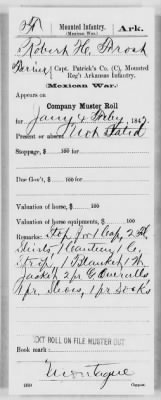 Mounted Infantry.
(Mexican War.)
Ark.
Robert H.
Capt. Patrick's Co. (C), Mounted
Reg't Arkansas Infantry.
(Mexican War.)
Appears on
Company Muster Roll
for Jany & Feby, 184
Present or absent Not Stated
Stoppage, $ 100 for
Due Gov't, $ 100 for
Valuation of horse, $ 100
Valuation of horse equipments, $ 100
Remarks: Stop for 1 Cap, 2 Fl.
Shirts 1 Canteen &
Strap, 1 Blanket 1 W.
Jacket 2 pr Overalls
1 pr. Shoes, 1 pr Socks
NEXT ROLL ON FILE MUSTER OUT
Book mark
Montague
Copyist.